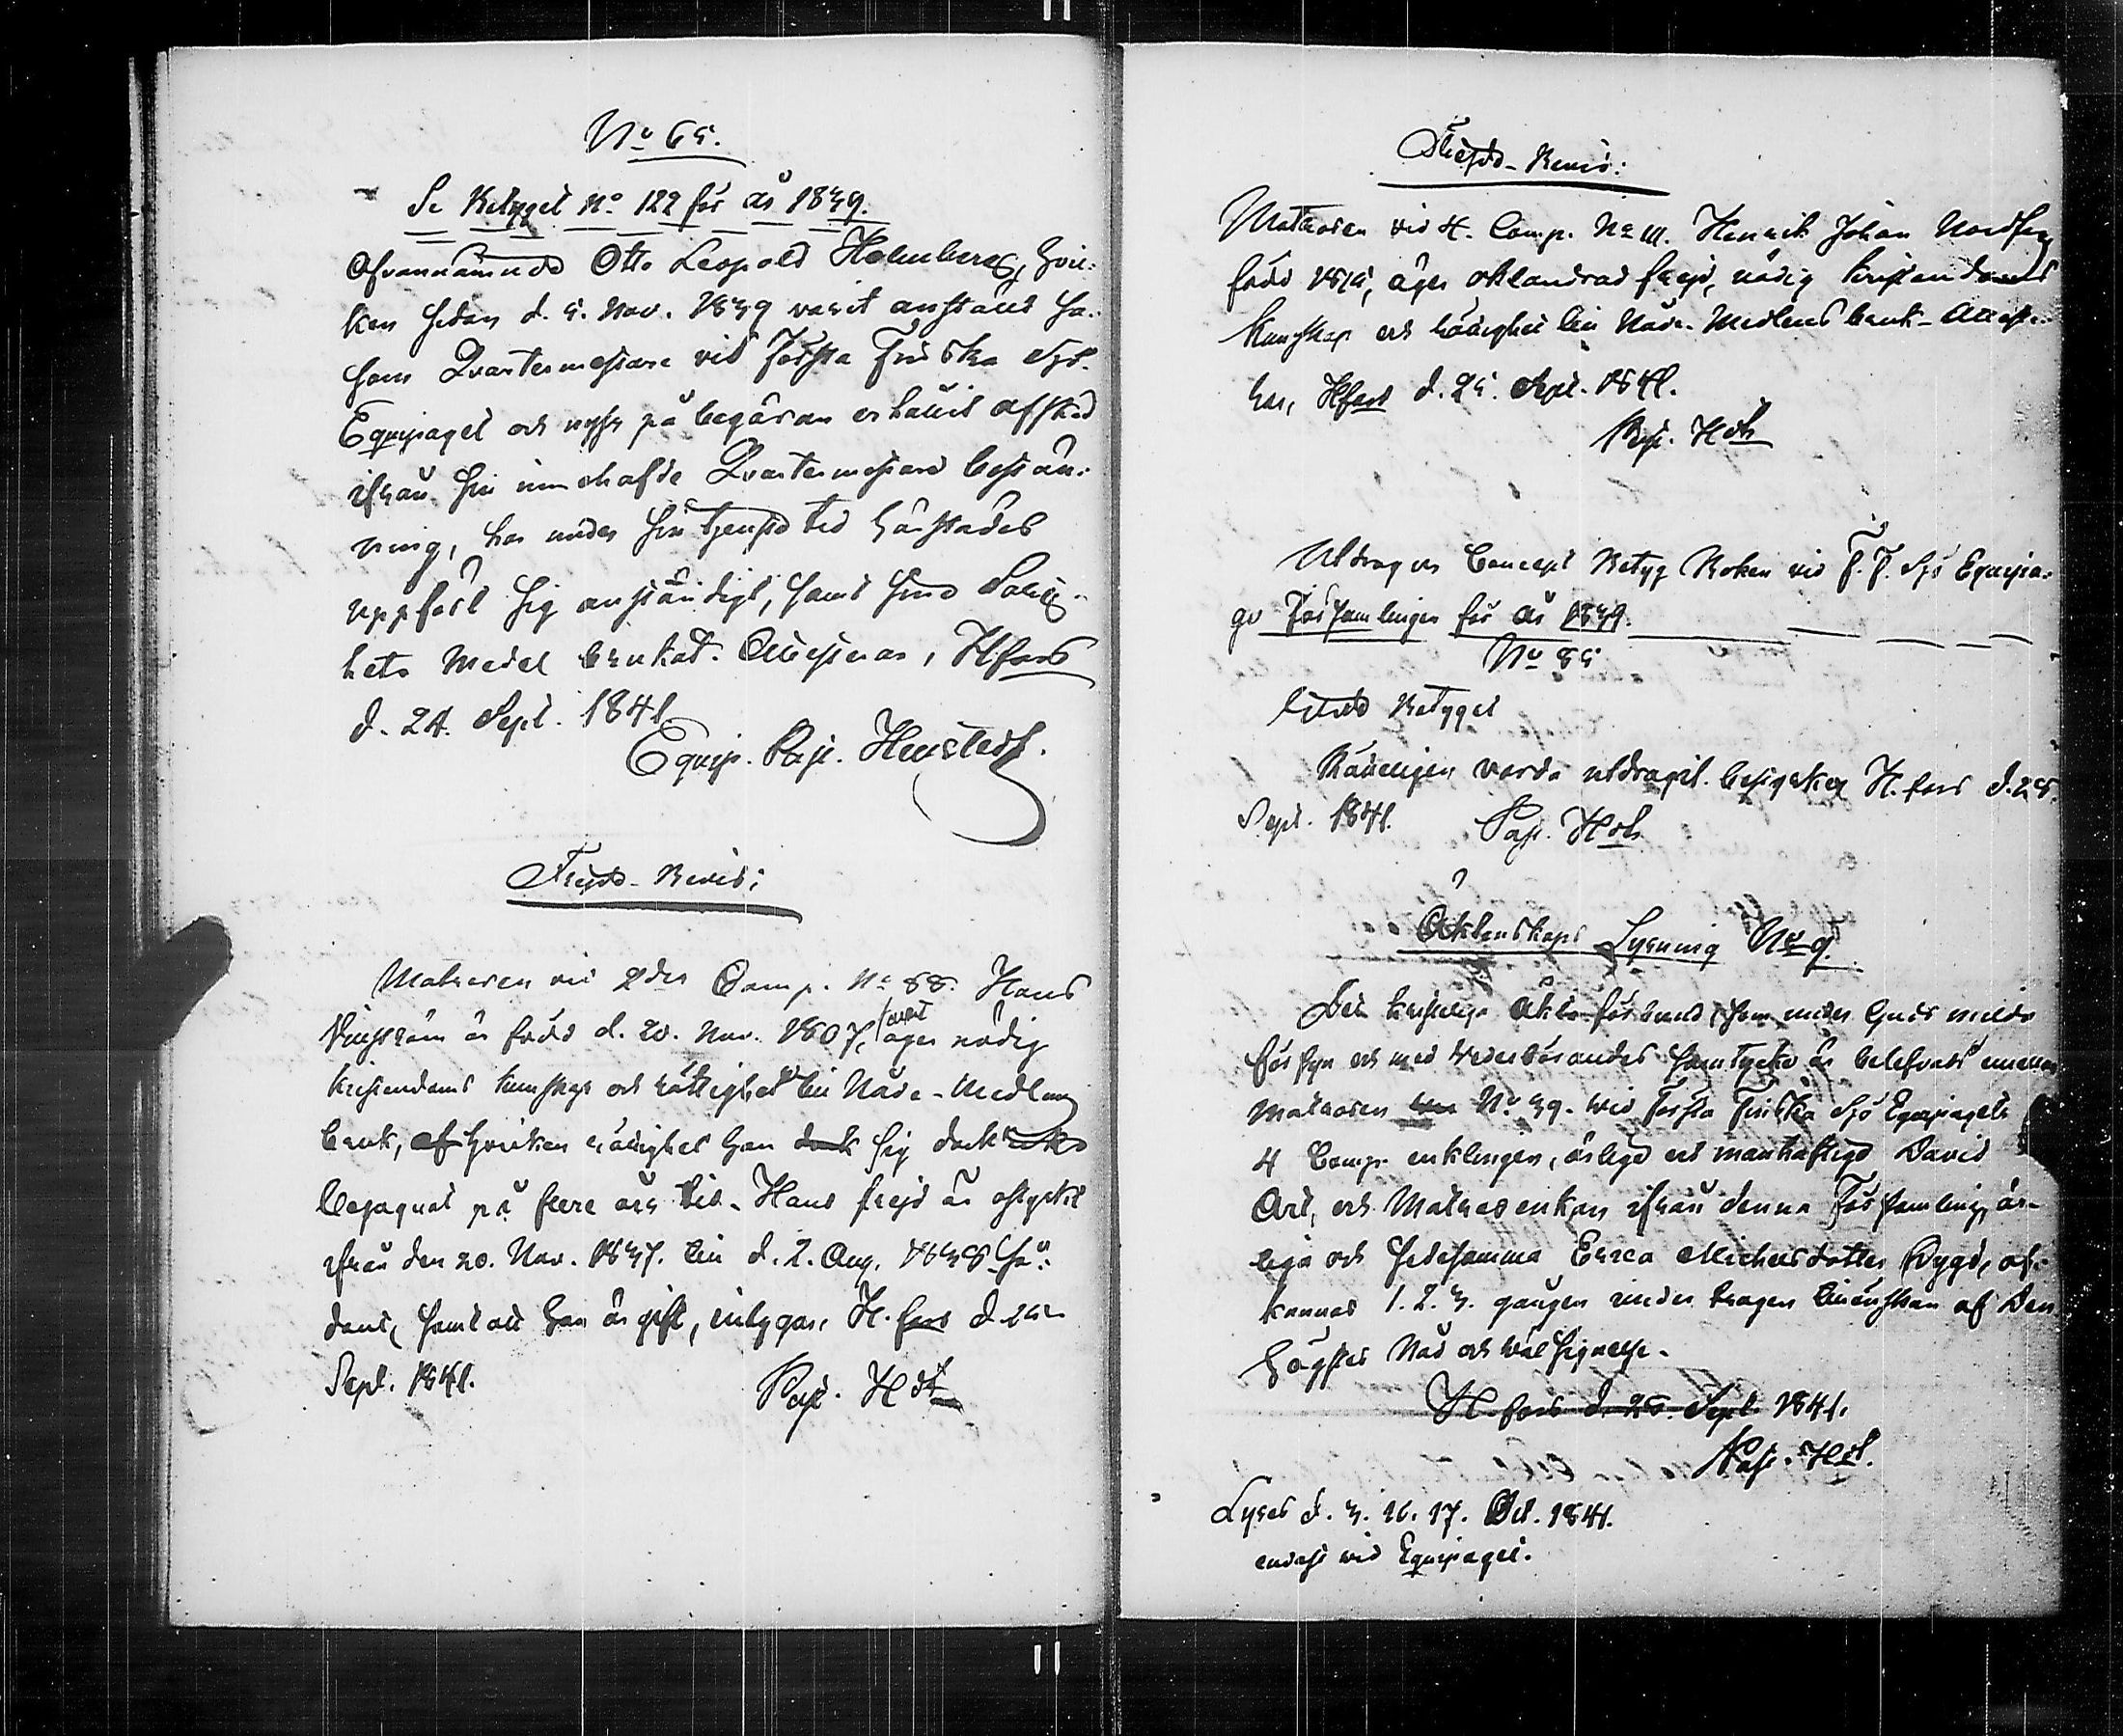 No 65.
Se Betyget No 122 för år 1839.
Ofvannämnde Otto Leopold Holmberg, hvil-
ken sedan d. 5. Nov. 1839 varit anstäld så-
som Qvartermästare vid Första Finska Sjö-
Equipaget och nyss på begäran erhållit afsked
ifrån sin innehafde Qvartermästare beställ-
ning, har under sin tjenste tid härstädes
uppfört sig anständigt, samt sine Salig-
hets Medel brukat. Attesterar, Hfors
d. 24. Sept. 1841
Equip. Past. Henstedt.
Frejde-Bevis:
Matrosen vid 2dra Comp. No 88. Hans
är född d. 20. Nov. 1807, äger nödig
kristendoms kunskap och rättighet till Nåde-Medlens
bruk, af hvilken rättighet han sig dock icke
begagnat på flere års tid. Hans frejd är obefläckt
ifrån den 20. Nov. 1837. till d. 2. Aug. 1838
samt att han är gift, intygar, H.fors d. 25
Sept. 1841. Past. Hdt
Frejde-Bevis:
Matrosen vid 4. Comp. No 111. Henrik Johan
född äger oklandrad frejd, nödig kristendoms
kunskap och rättighet till Nåde-Medlens bruk. Atteste-
rar, Hfors d. 25. Sept. 1841.
Past. Hdt
Utdrag ur Concept Betyg Boken vid F. F. Sjö Equipa-
ge Församlingen för år 1839.
No 85
Betyget
Rätteligen vara utdraget, besigtar H.fors d. 25.
Sept. 1841. Past. Hdt
Äktenskaps Lysning No 9.
Det kristliga äkta förbund, som under Guds milda
försyn och med vederbörandes samtycke är belefvadt emellan
Matrosen No 39. wid Första Finska Sjö Equipagets
4 Comp. enklingen, ärlige och manhaftige David
Ort, och Matros enkan ifrån denna Församling, är-
liga och sedesamma Erica Michelsdotter Bygd, af-
kunnas 1. 2. 3. gången under trogen tillönskan af Den
Högstes Nåd och wälsignelse.
H.fors d. 25. Sept. 1841.
Past. Hdt.
Lyses d. 3. 10. 17. Oct. 1841.
endast wid Equipaget.